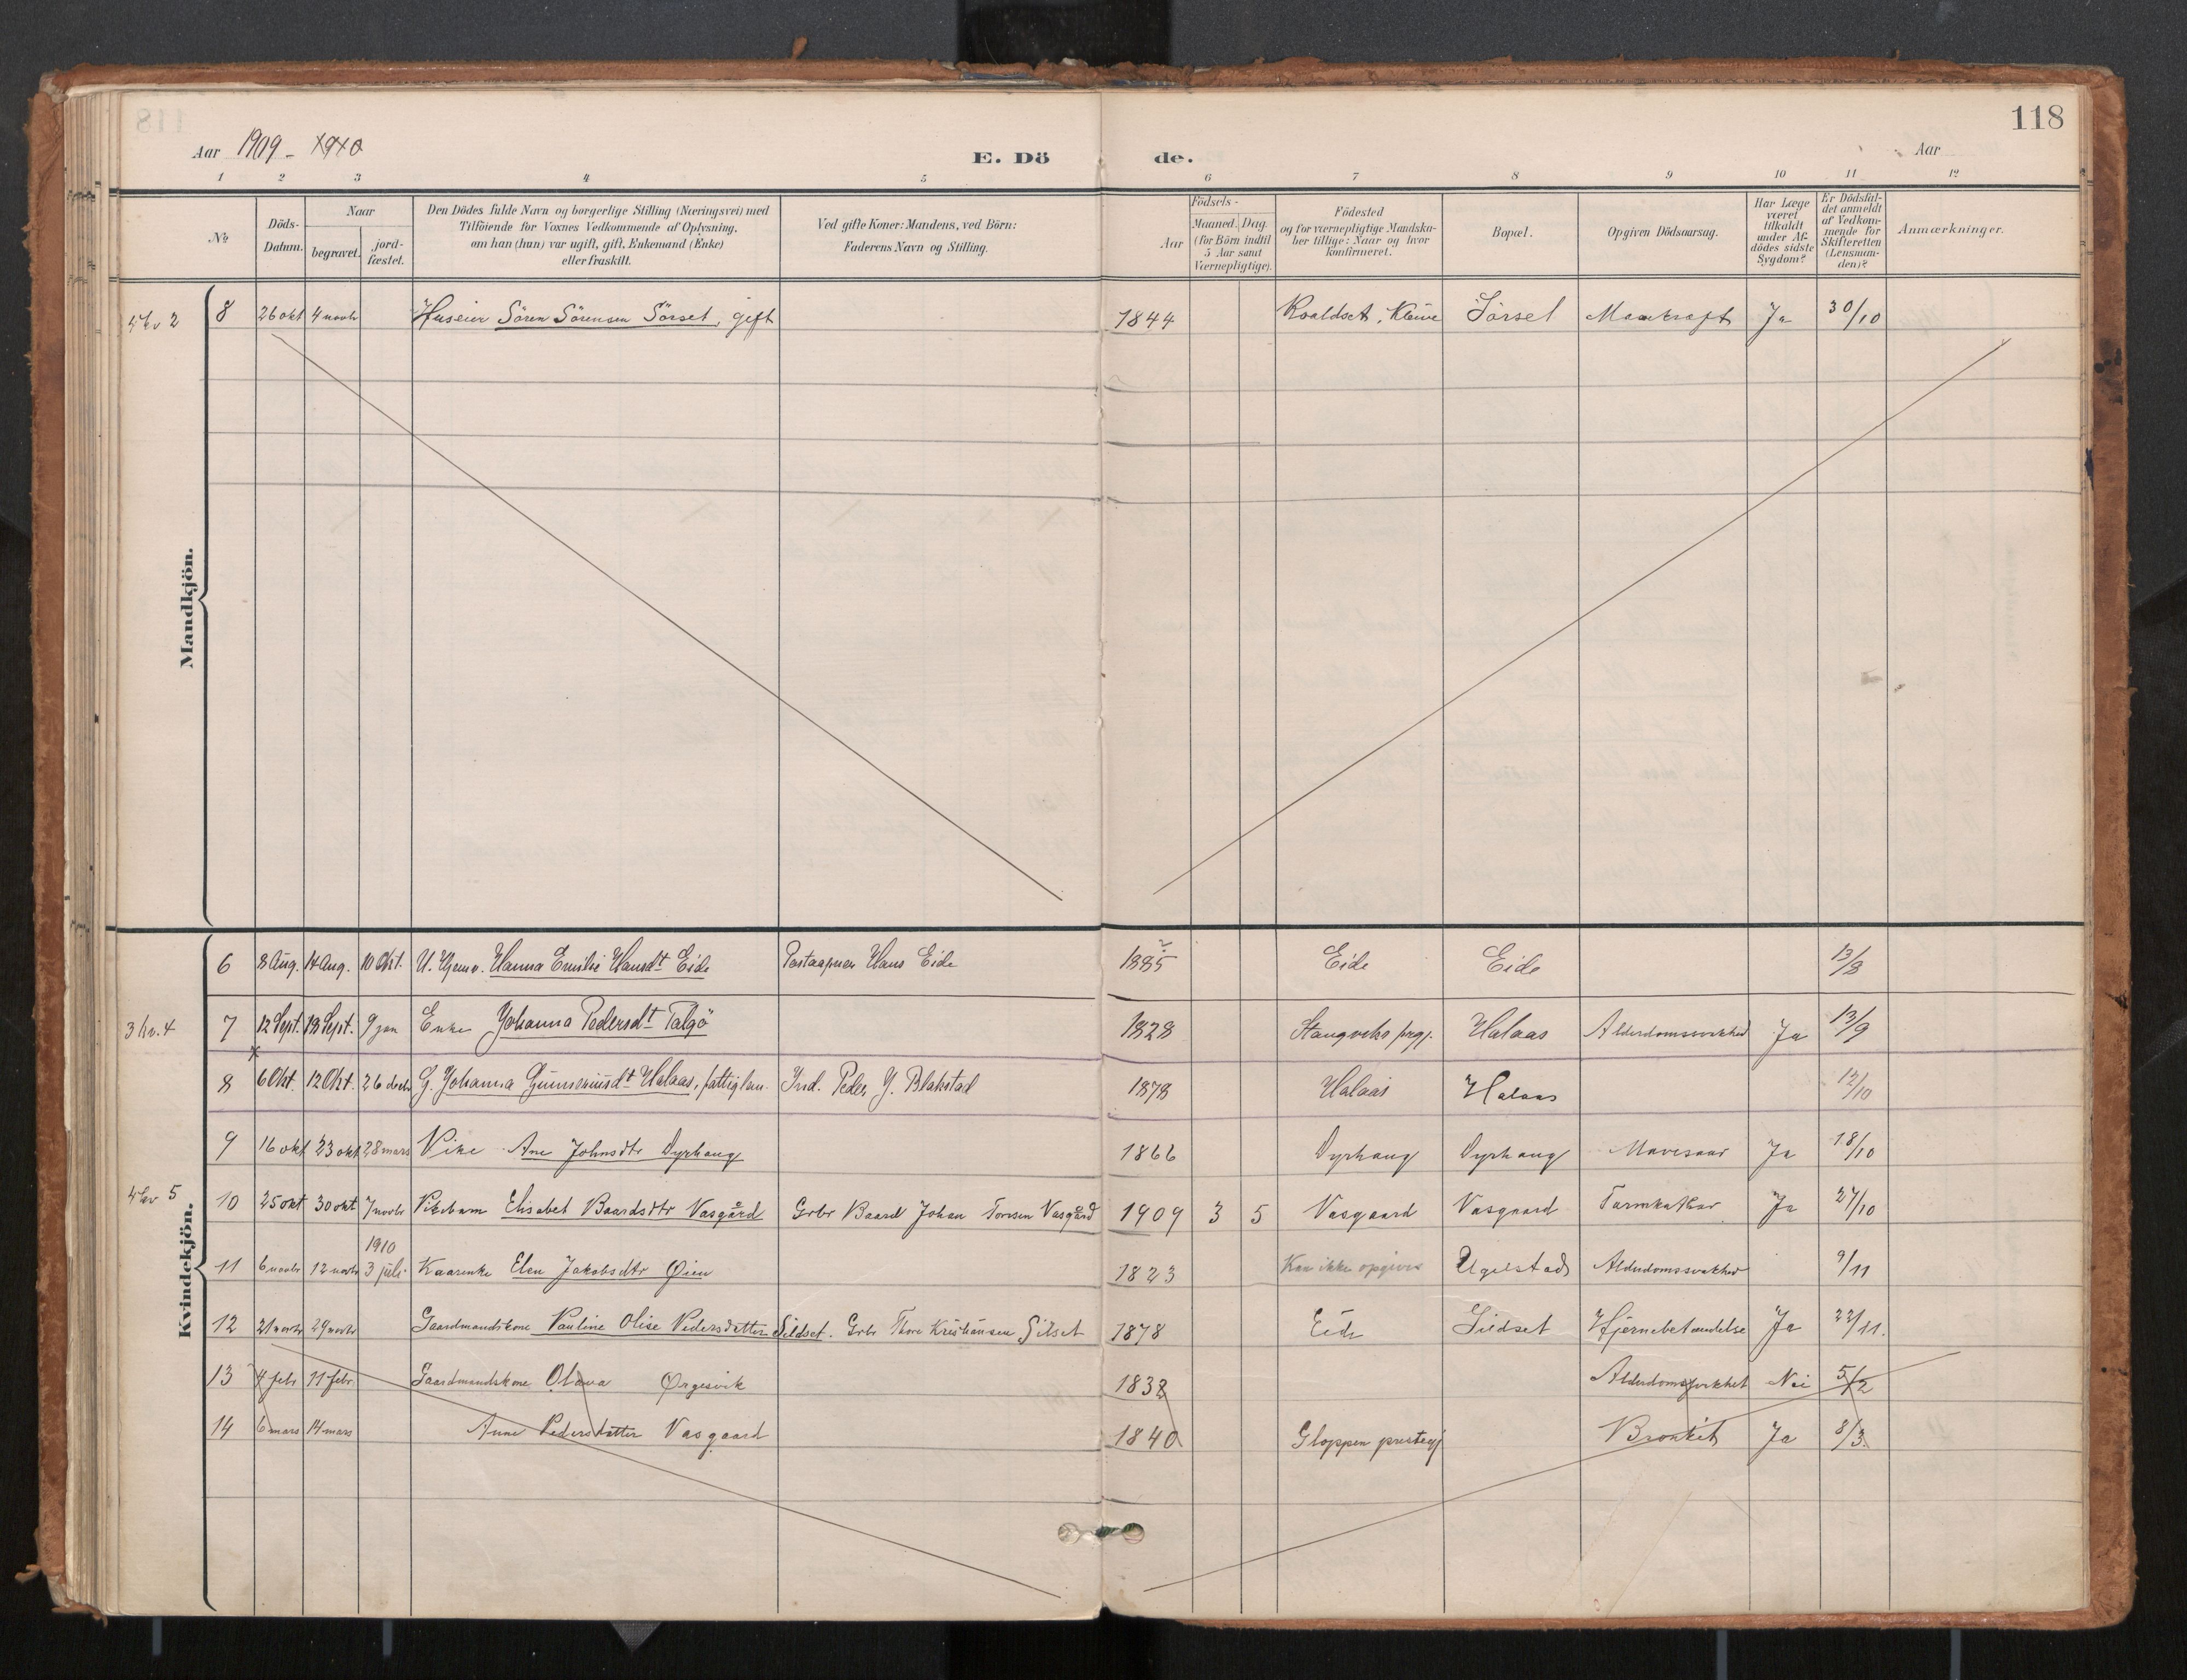 118
Aar 1909 - 1910
E. Dö de.
Aar
1 2 3 4 5 6 7 8 9 10 11 12
No. Döds-Datum. Naar begravet. jord-fæstet. Den Dödes fulde Navn og borgerlige Stilling (Næringsvei) med Tilföiende for Voxnes Vedkommende af Oplysning, om han (hun) var ugift, gift, Enkemand (Enke) eller fraskilt. Ved gifte Koner: Mandens, ved Börn: Faderens Navn og Stilling. Aar Födsels- Maaned. Dag. (for Börn indtil 5 Aar samt Værnepligtige). Födested og for værnepligtige Mandska-ber tillige: Naar og hvor konfirmeret. Bopæl. Opgiven Dödsaarsag. Har Læge været tilkaldt under Af-dödes sidste Sygdom? Er Dödsfal-det anmeldt af Vedkom-mende for Skifteretten (Lensman-den)? Anmærkninger.
Mandkjön.
4 kv 2 8 26 okt 4 novbr Huseier Sören Sörensen Sörset, gift 1844 Roaldset, Kleive Sörset Mavekræft Ja 30/10
Kvindekjön.
6 8 Aug. 14 Aug. 10 Okt. U. Hjemv. Hanna Emilie Hansdt Eide Postaapner Hans Eide 1885 Eide Eide 13/8
3 kv. 4 7 12 Sept. 18 Sept. 9 jan Enke Johanna Pedersdt Talgö 1828 Stangviks prgj. Halaas Alderdomssvakhed Ja 13/9
8 6 Okt. 12 Okt. 26 decbr G. Johanna Gunneriusdt Halaas, fattiglem. Ind. Peder J. Blakstad 1878 Halaas Halaas 12/10
9 16 okt 23 okt 28 mars Pike Ane Johnsdtr Dyrhaug 1866 Dyrhaug Dyrhaug Mavesaar Ja 18/10
4 kv 5 10 25 okt 30 okt 7 novbr Pikebarn Elisabet Baardsdtr Vasgård Grbr Baard Johan Toresen Vasgård 1909 3 5 Vasgaard Vasgaard Tarmkatharr Ja 27/10
1910
11 6 novbr 12 novbr 3 juli Kaarenke Elen Jakobsdtr Øien 1823 Kan ikke opgives Ugelstad Alderdomssvakhed 9/11
12 21 novbr 29 novbr Gaardmandskone Pauline Olise Pedersdatter Sildset. Grbr Thore Kristiansen Silset 1878 Eide Sildset Hjernebetændelse Ja 22/11.
13 4 febr 11 febr. Gaardmandskone Olava Ørgesvik 1838 Alderdomssvakhet Nei 5/2
14 6 mars 14 mars Anne Pedersdatter Vasgaard 1840 Gloppen prestegj Bronkit Ja 8/3